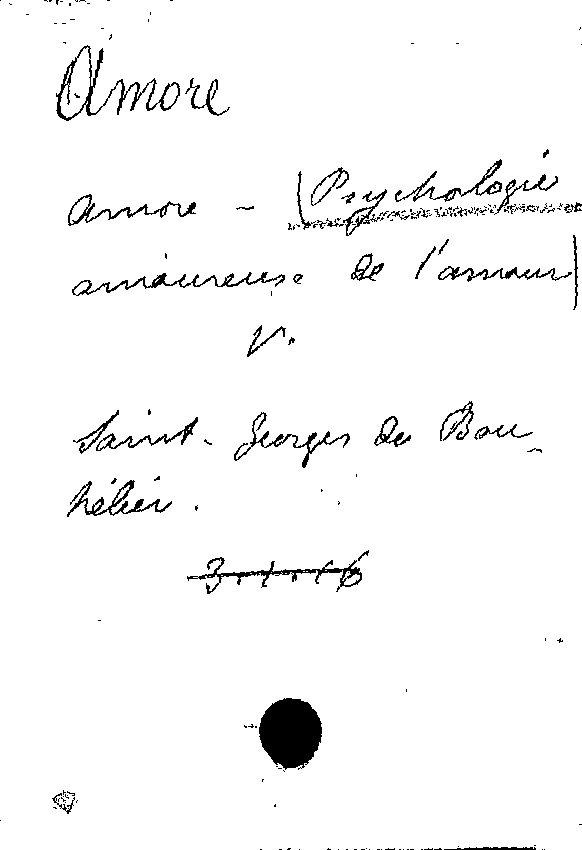 Amore
Amore - (Psychologie
amoureuse de l'amour)
V.
Saint-Georges de Bou-
hélier.
3.1.16